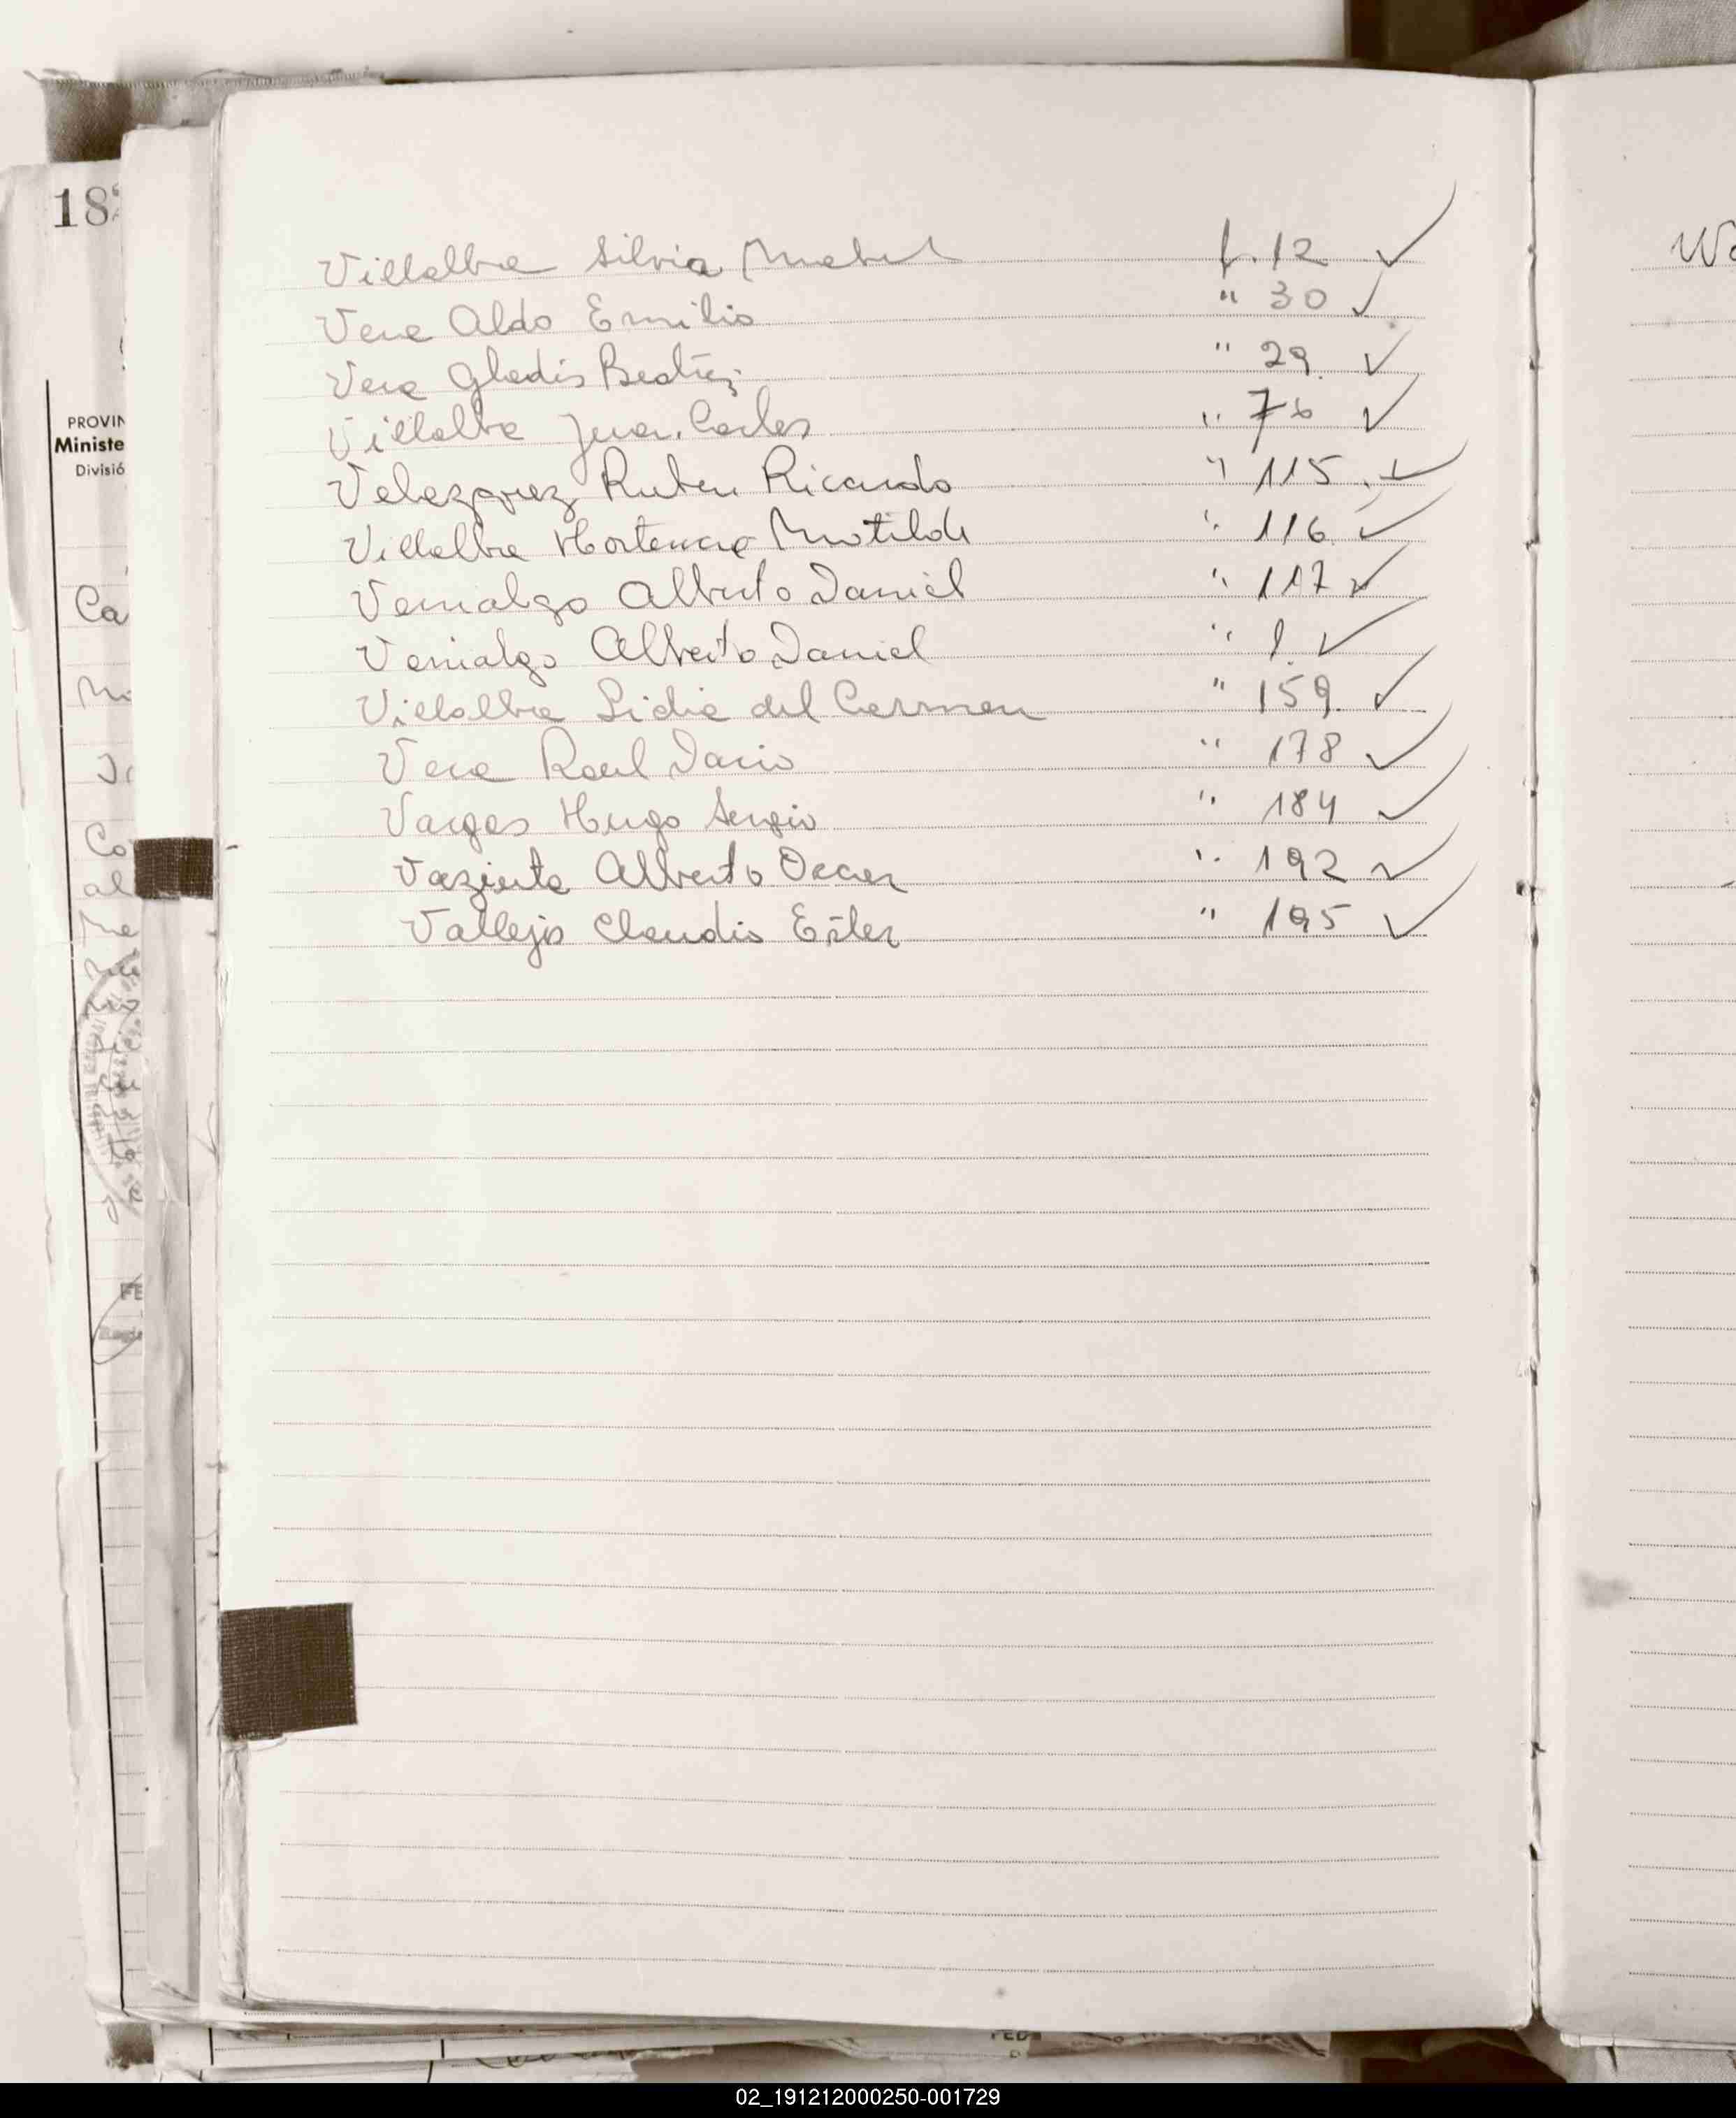 Villalba Silvia Mabel f. 12 ✓
Vera Aldo Emilio " 30 ✓
Vera Gladis Beatriz " 29 ✓
Villalba Juan Carlos " 76 ✓
Velazquez Ruben Ricardo " 115 ✓
Villalba Hortencia Matilde " 116 ✓
Venialgo Alberto Daniel " 117 ✓
Venialgo Alberto Daniel " 1 ✓
Villalba Lidia del Carmen " 159 ✓
Vera Raul Dario " 178 ✓
Vargas Hugo Sergio " 184 ✓
Alberto Oscar " 192 ✓
Vallejo Claudia Ester " 195 ✓
PROVIN
Ministe
Divisió
Ca
Co
al
FE
02_191212000250-001729